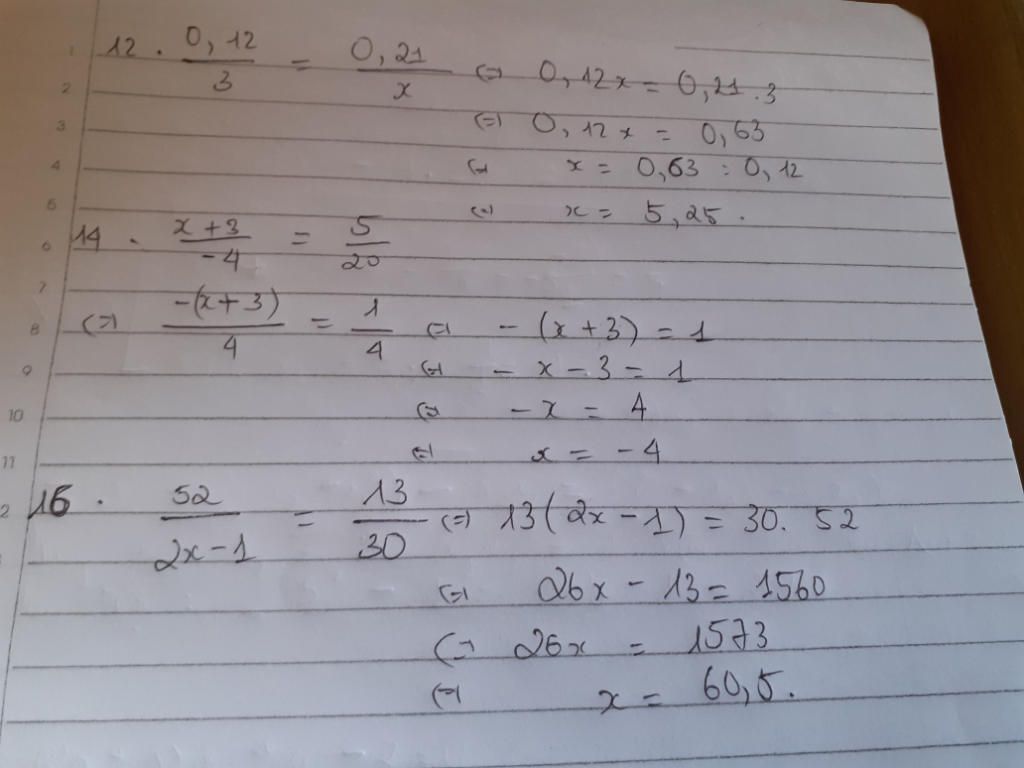 12. 0,12/3 = 0,21/x ⇔ 0,12x = 0,21.3
⇔ 0,12x = 0,63
⇔ x = 0,63 : 0,12
⇔ x = 5,25.
14. x+3/-4 = 5/20
⇔ -(x+3)/4 = 1/4 ⇔ -(x+3) = 1
⇔ -x-3 = 1
⇔ -x = 4
⇔ x = -4
16. 52/2x-1 = 13/30 ⇔ 13(2x-1) = 30. 52
⇔ 26x - 13 = 1560
⇔ 26x = 1573
⇔ x = 60,5.